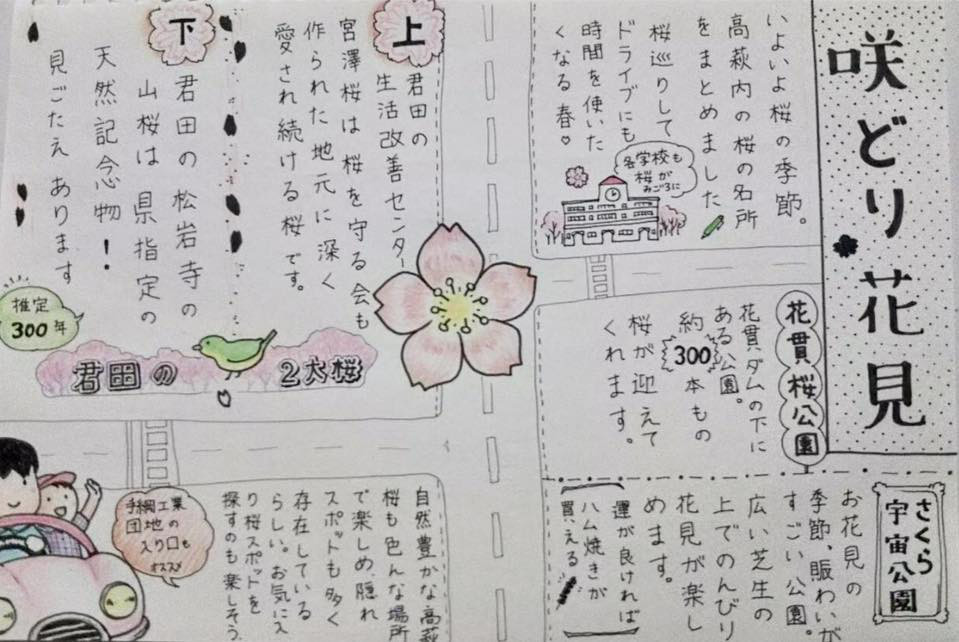 咲どり花見
いよいよ桜の季節。
高萩内の桜の名所
をまとめました
桜巡りして
ドライブにも
時間を使いた
くなる春♡
各学校も
桜が
みごろに
花貫桜公園
花貫ダムの下に
ある公園。
約300本もの
桜が迎えて
くれます。
さくら
宇宙公園
お花見の
季節、賑わいが
すごい公園。
広い芝生の
上でのんびり
花見が楽し
めます。
運が良ければ
ハム焼きが
買える
上
君田の
生活改善センター
宮澤桜は桜を守る会も
作られた地元に深く
愛され続ける桜です。
下
君田の松岩寺の
山桜は県指定の
天然記念物！
見ごたえあります
推定
300年
君田の2大桜
自然豊かな高萩
桜も色んな場所
で楽しめ隠れ
スポットも多く
存在している
らしい。お気に入
り桜スポットを
探すのも楽しそう
手綱工業
団地の
入り口も
オススメ